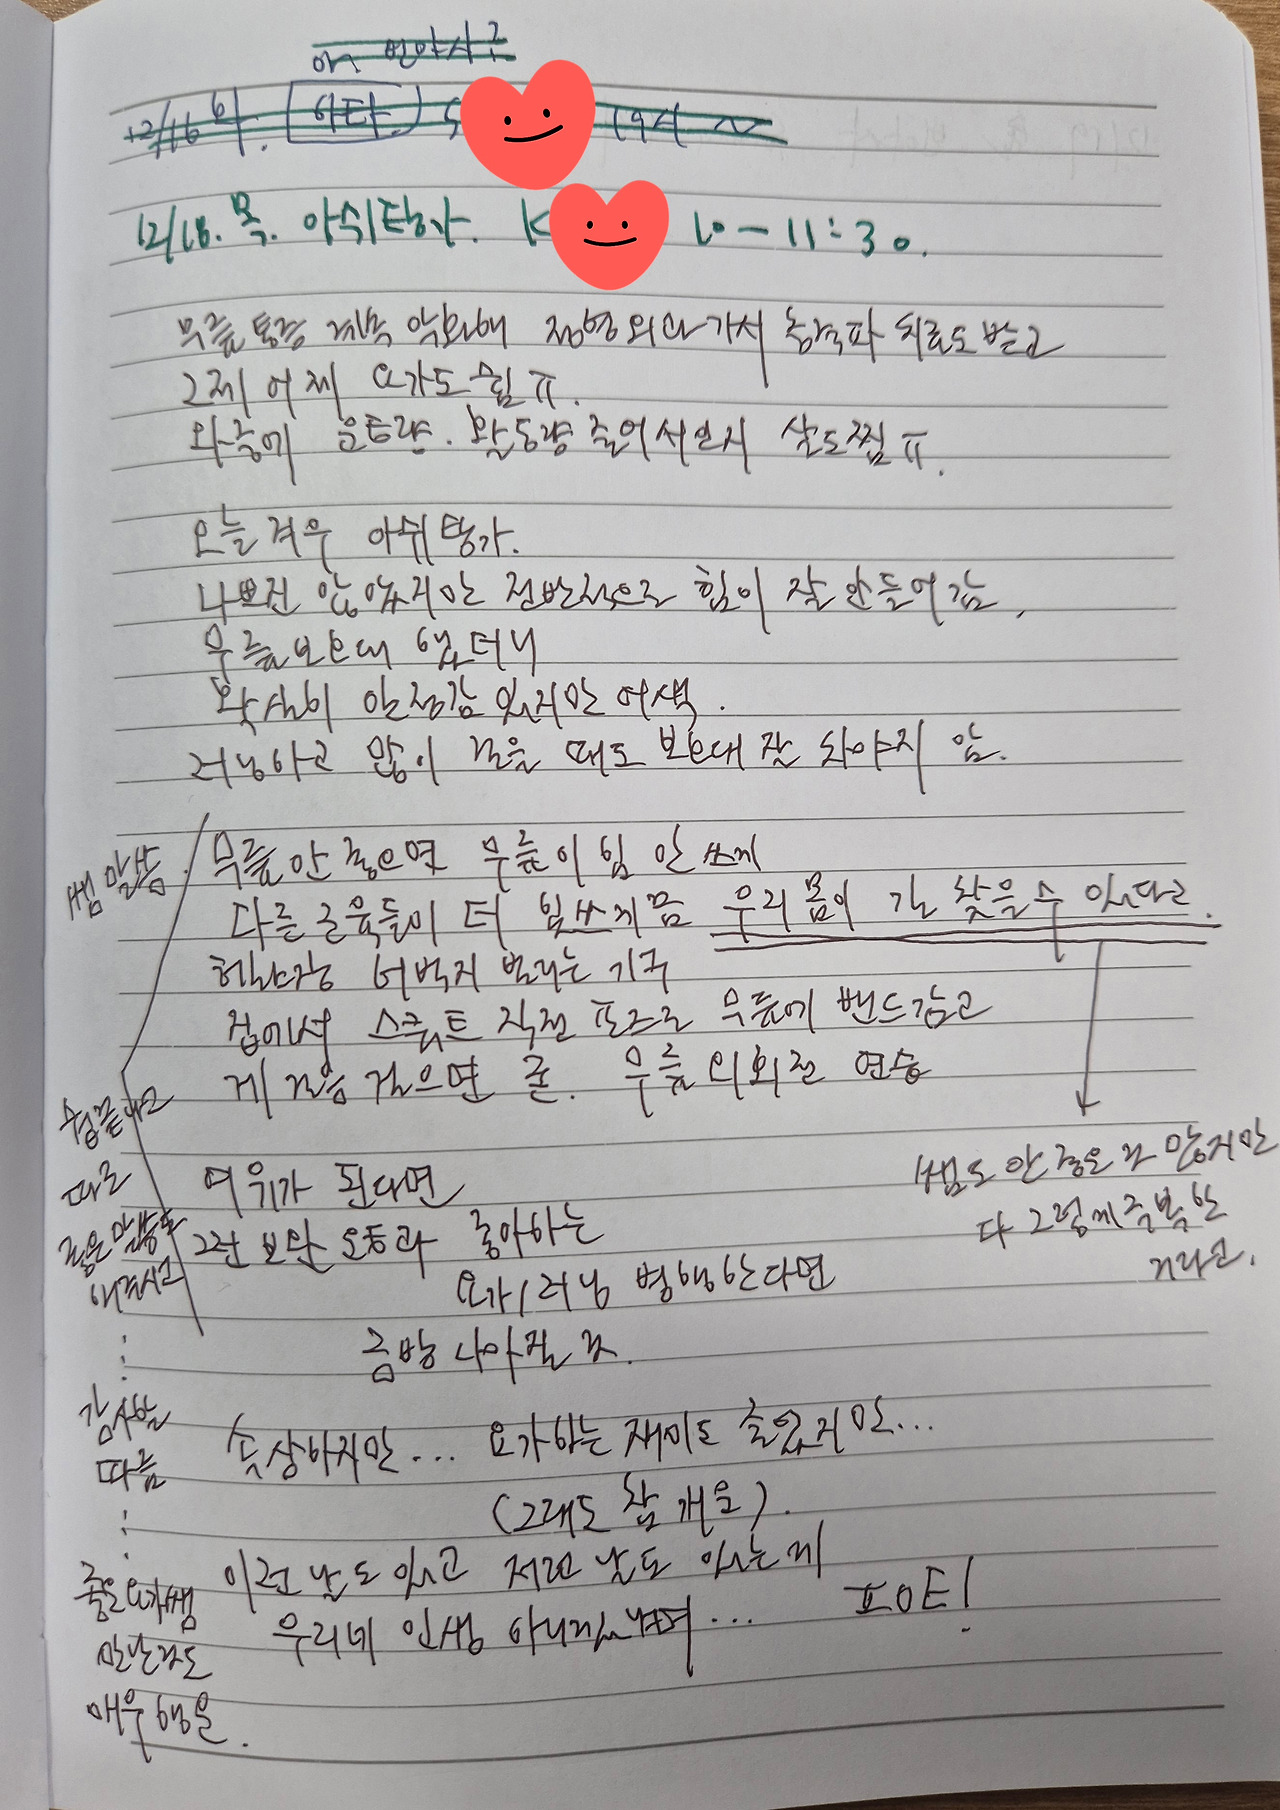 12/16 화. 하타 19시~
12/18. 목. 아쉬탕가. K 10-11:30.
무릎통증 계속 악화해 정형외과가서 충격파 치료도 받고
그제 어제 요가도 쉼ㅠ.
와중에 운동량. 활동량 줄어서인지 살도찜ㅠ.
오늘 겨우 아쉬탕가.
나쁘진 않았지만 전반적으로 힘이 잘 안들어감.
무릎보호대 했더니
확실히 안정감 있지만 어색.
러닝하고 많이 걸을 때도 보호대 잘 차야지 암.
쌤 말씀. 무릎 안 좋으면 무릎이 힘 안 쓰게
다른 근육들이 더 힘쓰게끔 우리몸이 길 찾을 수 있다고.
헬스장 허벅지 벌리는 기구
집에서 스쿼트 직전 포즈로 무릎에 밴드감고
게 걸음 걸으면 굿. 무릎 외회전 연습
쌤도 안 좋은 곳 많지만
다 그렇게 극복한
거라고.
여위가 된다면
그런 보완 운동과 좋아하는
요가/러닝 병행한다면
금방 나아질 것.
수업끝나고
따로
좋은말씀도
해주시고
⋮
감사할
따름
⋮
좋은요가쌤
만난것도
매우행운.
속상하지만... 요가하는 재미도 줄었지만...
(그래도 참 개운).
이런 날도 있고 저런 날도 있는게
우리네 인생 아니겠냐며... 포아티!